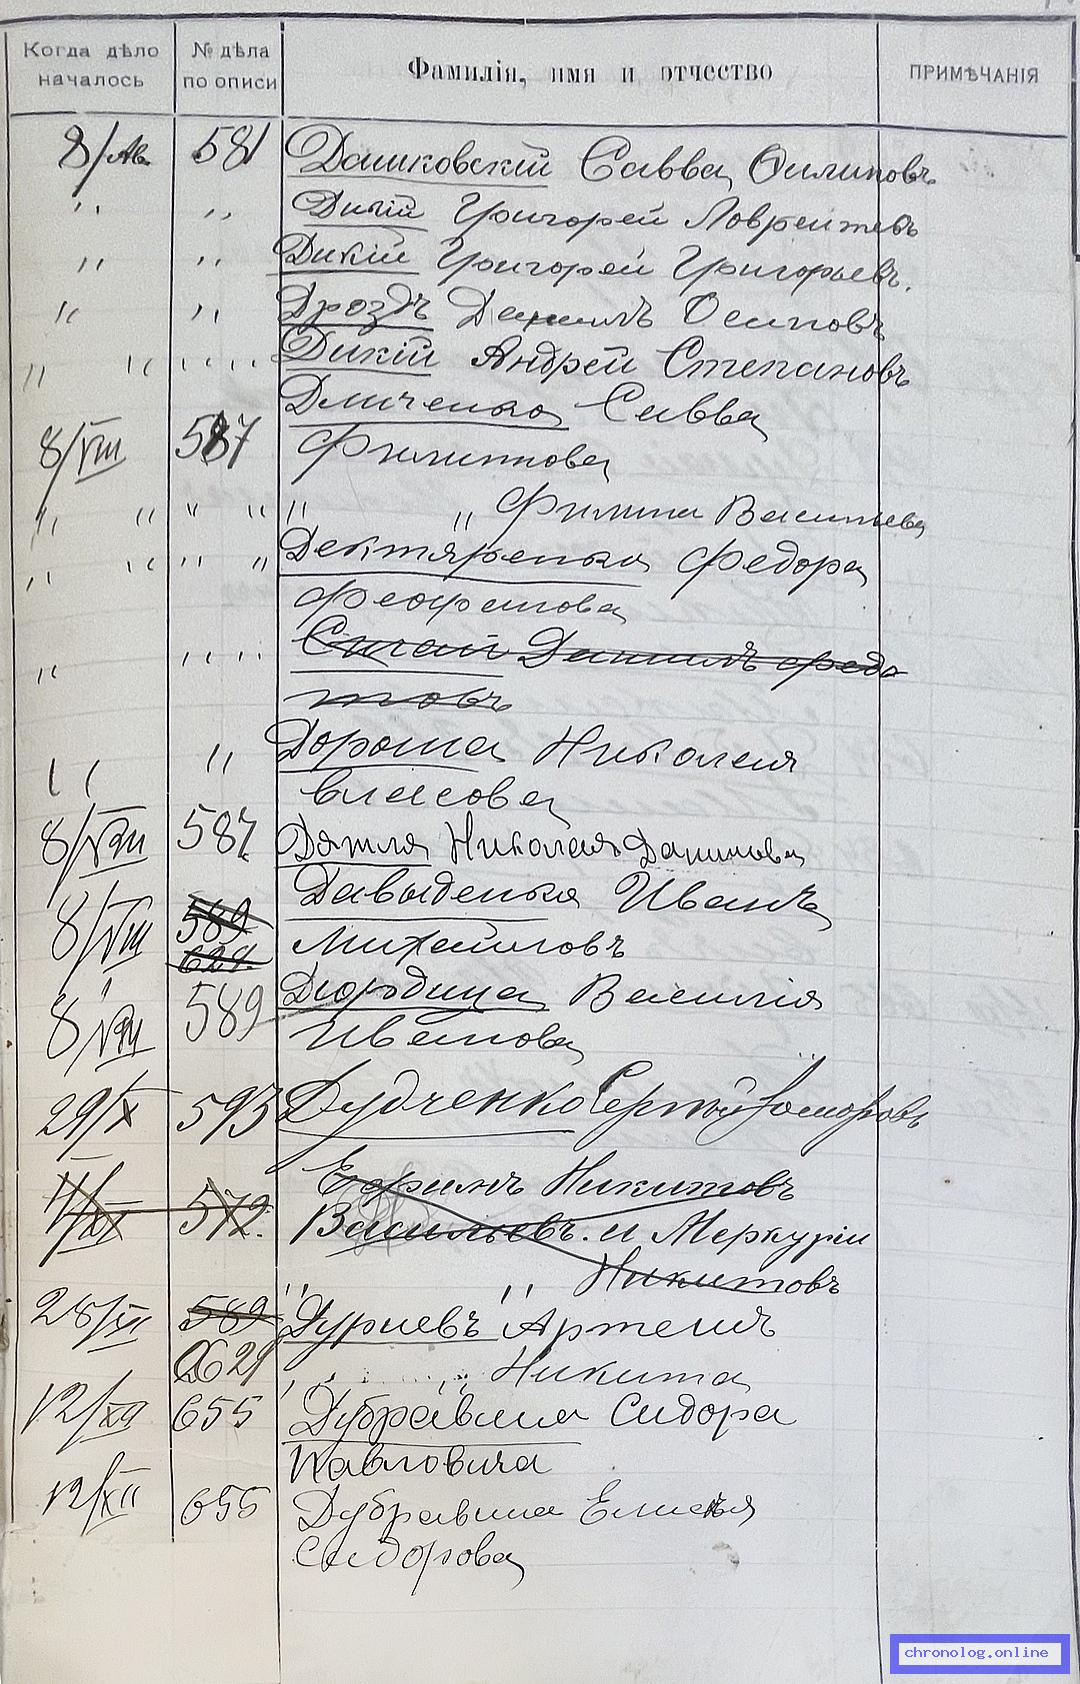 Когда дѣло началось № дѣла по описи Фамилія, имя и отчество ПРИМѢЧАНІЯ
8/Ав. 581 Дашковскій Савва Филиповъ
" " Дикій Григорей Лаврентевъ
" " Дикій Григорей Григорьевъ.
" " Дроздъ Даниилъ Осиповъ
" " " " Дикій Андрей Степановъ
Савва
8/VIII 587 Филиппова
" " " " " " Филипа Васильева
" " " " Дектяренка Федора
Феофанова
" " " Даниилъ Федо
товъ
" " Дороша Николая
Власова
8/VIII 587 Дятла Николая Данилова
Давыденка Иванъ
8/VIII 589 Михайловъ
621.
8/VIII 589 Василія
Иванова
29/X 593 Дудченко Сергѣй
Ефримъ Никитовъ
572. Васильевъ. и Меркурій
Никитовъ
28/XI 589 " " Дуриевъ Артемій
621 " " Никита
12/XII 655 Дубравина Сидора
Павловича
12/XII 655 Дубравина Елисѣя
Сидорова
chronolog.online